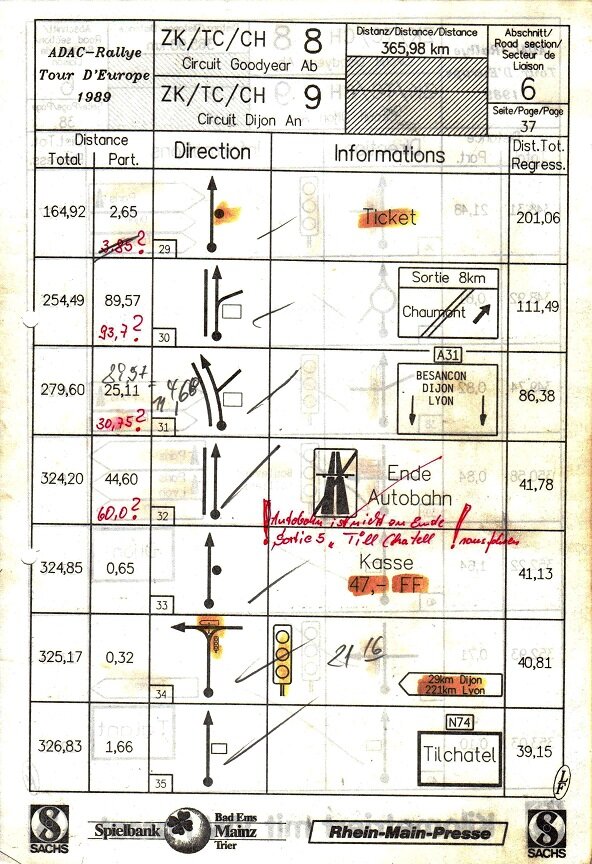 ADAC-Rallye
Tour D'Europe
1989
ZK/TC/CH 8
Circuit Goodyear Ab
ZK/TC/CH 9
Circuit Dijon An
Distanz/Distance/Distance
365,98 km
Abschnitt/
Road section/
Secteur de
Liaison
6
Seite/Page/Page
37
Distance
Total Part.
Direction
Informations
Dist.Tot.
Regress.
164,92 2,65
3,85?
29
Ticket
201,06
254,49 89,57
93,7?
30
Sortie 8km
Chaumont
111,49
279,60 25,11
30,75?
31
A31
BESANCON
DIJON
LYON
86,38
324,20 44,60
60,0?
32
Ende
Autobahn
41,78
! Autobahn ist nicht an Ende
Sortie 5, Till Chatell ! rausfahren
324,85 0,65
33
Kasse
47,- FF
41,13
325,17 0,32
34
21 16
29km Dijon
221km Lyon
40,81
326,83 1,66
35
N74
Tilchatel
39,15
SACHS
Spielbank
Bad Ems
Mainz
Trier
Rhein-Main-Presse
SACHS